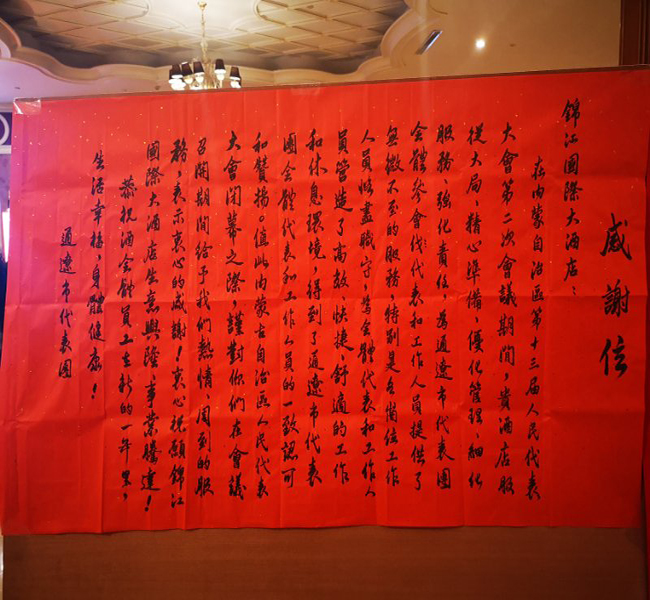 感謝信
錦江國際大酒店：
在内蒙自治區第十三届人民代表
大會第二次會議期間，貴酒店服
從大局、精心準備、優化管理、細化
服務、強化責任，為通遼市代表團
全體參會代表和工作人員提供了
無微不至的服務，特别是各崗位工作
人員恪盡職守，為全體代表和工作人
員營造了高效、快捷、舒適的工作
和休息環境，得到了通遼市代表
團全體代表和工作人員的一致認可
和贊揚。值此内蒙古自治區人民代表
大會閉幕之際，謹對你們在會議
召開期間給予我們熱情、周到的服
務，表示衷心的感謝！衷心祝願錦江
國際大酒店生意興隆、事業騰達！
恭祝酒全體員工在新的一年里，
生活幸福，身體健康！
通遼市代表團